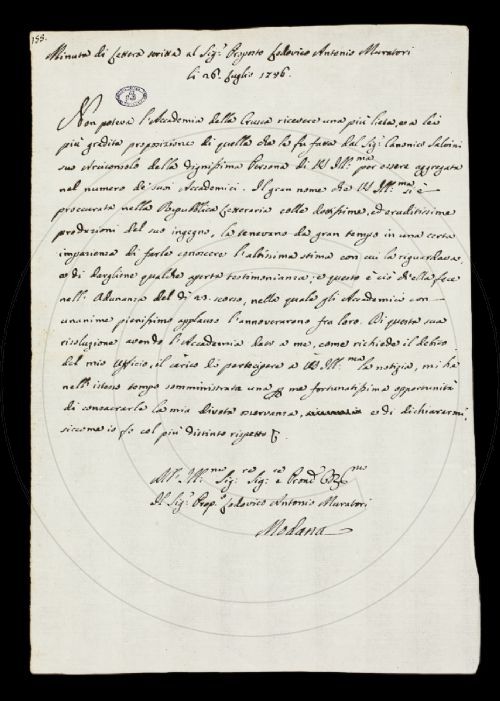 155.
Minuta di Lettera scritta al Sig.r Proposto Lodovico Antonio Muratori
li 26. Luglio 1746.
Non poteva l'Accademia della Crusca ricevere una più lieta, e a lei
più gradita proposizione di quella che le fu fatta dal Sig.r Canonico Salvini
suo Arciconsolo della dignissima Persona di VS Ill.ma per essere aggregata
nel numero de' suoi Accademici. Il gran nome che VS Ill.ma si è
procurata nella Repubblica Letteraria colle dottissime, ed eruditissime
produzioni del suo ingegno, la tenevano da gran tempo in una certa
impazienza di farle conoscere l'altissima stima con cui la riguardava,
e di dargliene qualche aperta testimonianza; e questo è ciò ch'ella fece
nell'Adunanza del dì 23. scorso, nella quale gli Accademici con
unanime pienissimo applauso l'annoverarono fra loro. Di questa sua
risoluzione avendo l'Accademia dato a me, come richiede il debito
del mio Uffizio, il carico di partecipare a VS Ill.ma la notizia, mi ha
nell'istesso tempo somministrata una per me fortunatissima opportunità
di consacrarle la mia divota osservanza, e di dichiararmi,
siccome io fo col più distinto rispetto
Sig.re Sig.re e
Il Sig.r Prop.o Lodovico Antonio Muratori
Modana